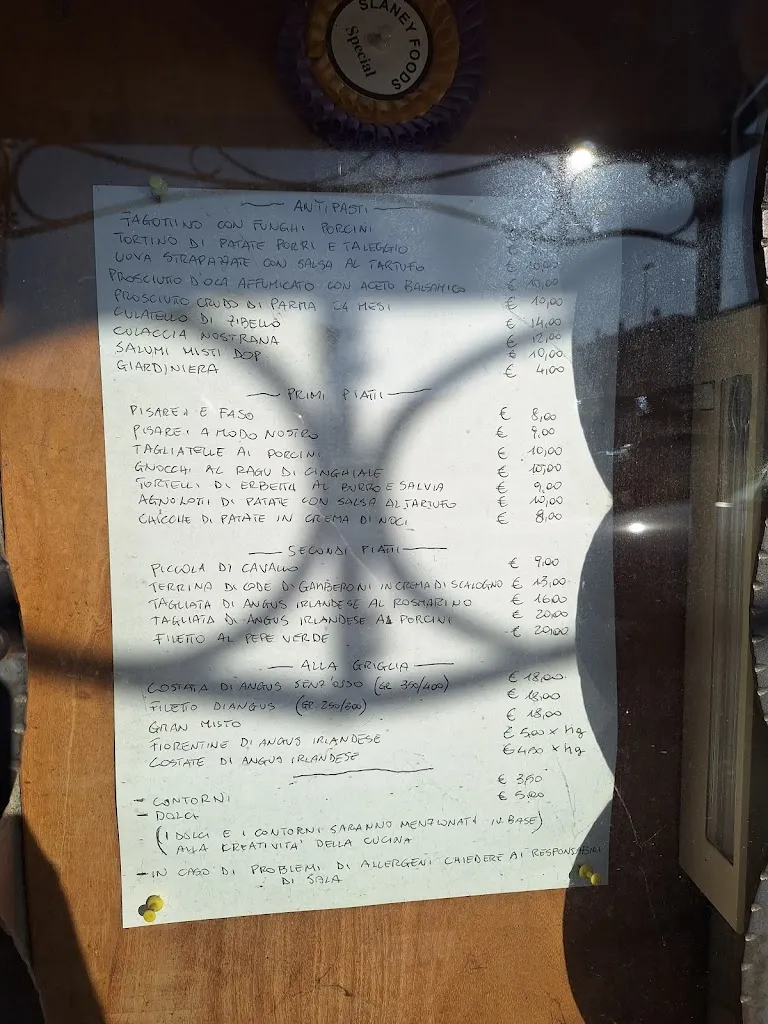 SLANEY FOODS
Special
ANTIPASTI
FAGOTTINO CON FUNGHI PORCINI
TORTINO DI PATATE PORRI E TALEGGIO
UOVA STRAPAZZATE CON SALSA AL TARTUFO € 10,00
PROSCIUTTO D'OCA AFFUMICATO CON ACETO BALSAMICO €
PROSCIUTTO CRUDO DI PARMA 24 MESI € 10,00
CULATELLO DI ZIBELLO € 14,00
CULACCIA NOSTRANA € 12,00
SALUMI MISTI DOP € 10,00
GIARDINIERA € 4,00
PRIMI PIATTI
PISAREI E FASO € 8,00
PISAREI A MODO NOSTRO € 9,00
TAGLIATELLE AI PORCINI € 10,00
GNOCCHI AL RAGU DI CINGHIALE € 10,00
TORTELLI DI ERBETTA AL BURRO E SALVIA € 9,00
AGNOLOTTI DI PATATE CON SALSA AL TARTUFO € 10,00
CHICCHE DI PATATE IN CREMA DI NOCI € 8,00
SECONDI PIATTI
PICCOLA DI CAVALLO € 9,00
TERRINA DI CODE DI GAMBERONI IN CREMA DI SCALOGNO € 13,00
TAGLIATA DI ANGUS IRLANDESE AL ROSMARINO € 16,00
TAGLIATA DI ANGUS IRLANDESE AI PORCINI € 20,00
FILETTO AL PEPE VERDE € 20,00
ALLA GRIGLIA
COSTATA DI ANGUS SENZ'OSSO (GR 350/400) € 18,00
FILETTO DI ANGUS (GR 250/300) € 18,00
GRAN MISTO € 18,00
FIORENTINE DI ANGUS IRLANDESE € 5,00 x Hg
COSTATE DI ANGUS IRLANDESE € 4,50 x Hg
- CONTORNI € 3,50
- DOLCI € 5,00
(I DOLCI E I CONTORNI SARANNO MENZIONATI IN BASE)
ALLA CREATIVITA' DELLA CUCINA
- IN CASO DI PROBLEMI DI ALLERGENI CHIEDERE AI RESPONSABILI
DI SALA